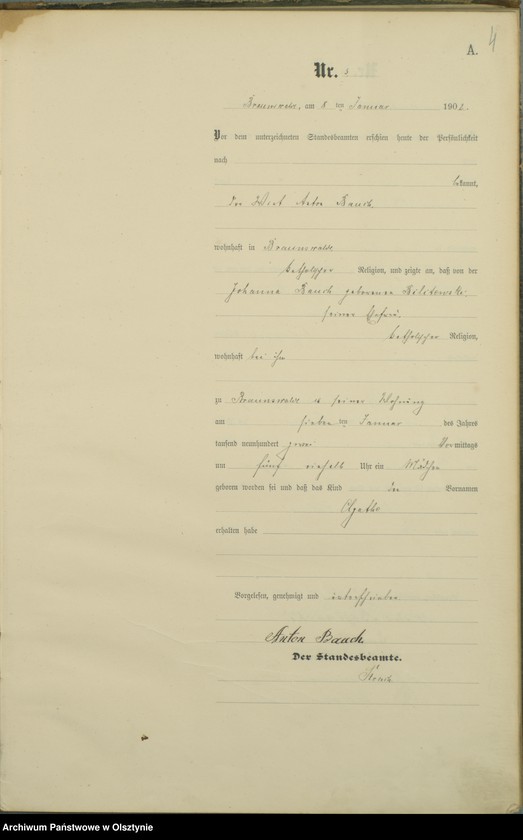 4
A.
Nr. 3
Braunswalde, am 8 ten Januar 1902.
Vor dem unterzeichneten Standesbeamten erschien heute der Persönlichkeit
nach
bekannt,
der Wirt Anton Bauch,
wohnhaft in Braunswalde
katholischer Religion, und zeigte an, daß von der
Johanna Bauch geborenen
seiner Ehefrau,
katholischer Religion,
wohnhaft bei ihm
zu Braunswalde in seiner Wohnung
am sieben ten Januar des Jahres
tausend neunhundert zwei Vormittags
um fünf einhalb Uhr ein Mädchen
geboren worden sei und daß das Kind den Vornamen
Agathe
erhalten habe
Vorgelesen, genehmigt und unterschrieben
Anton Bauch
Der Standesbeamte.
Archiwum Państwowe w Olsztynie